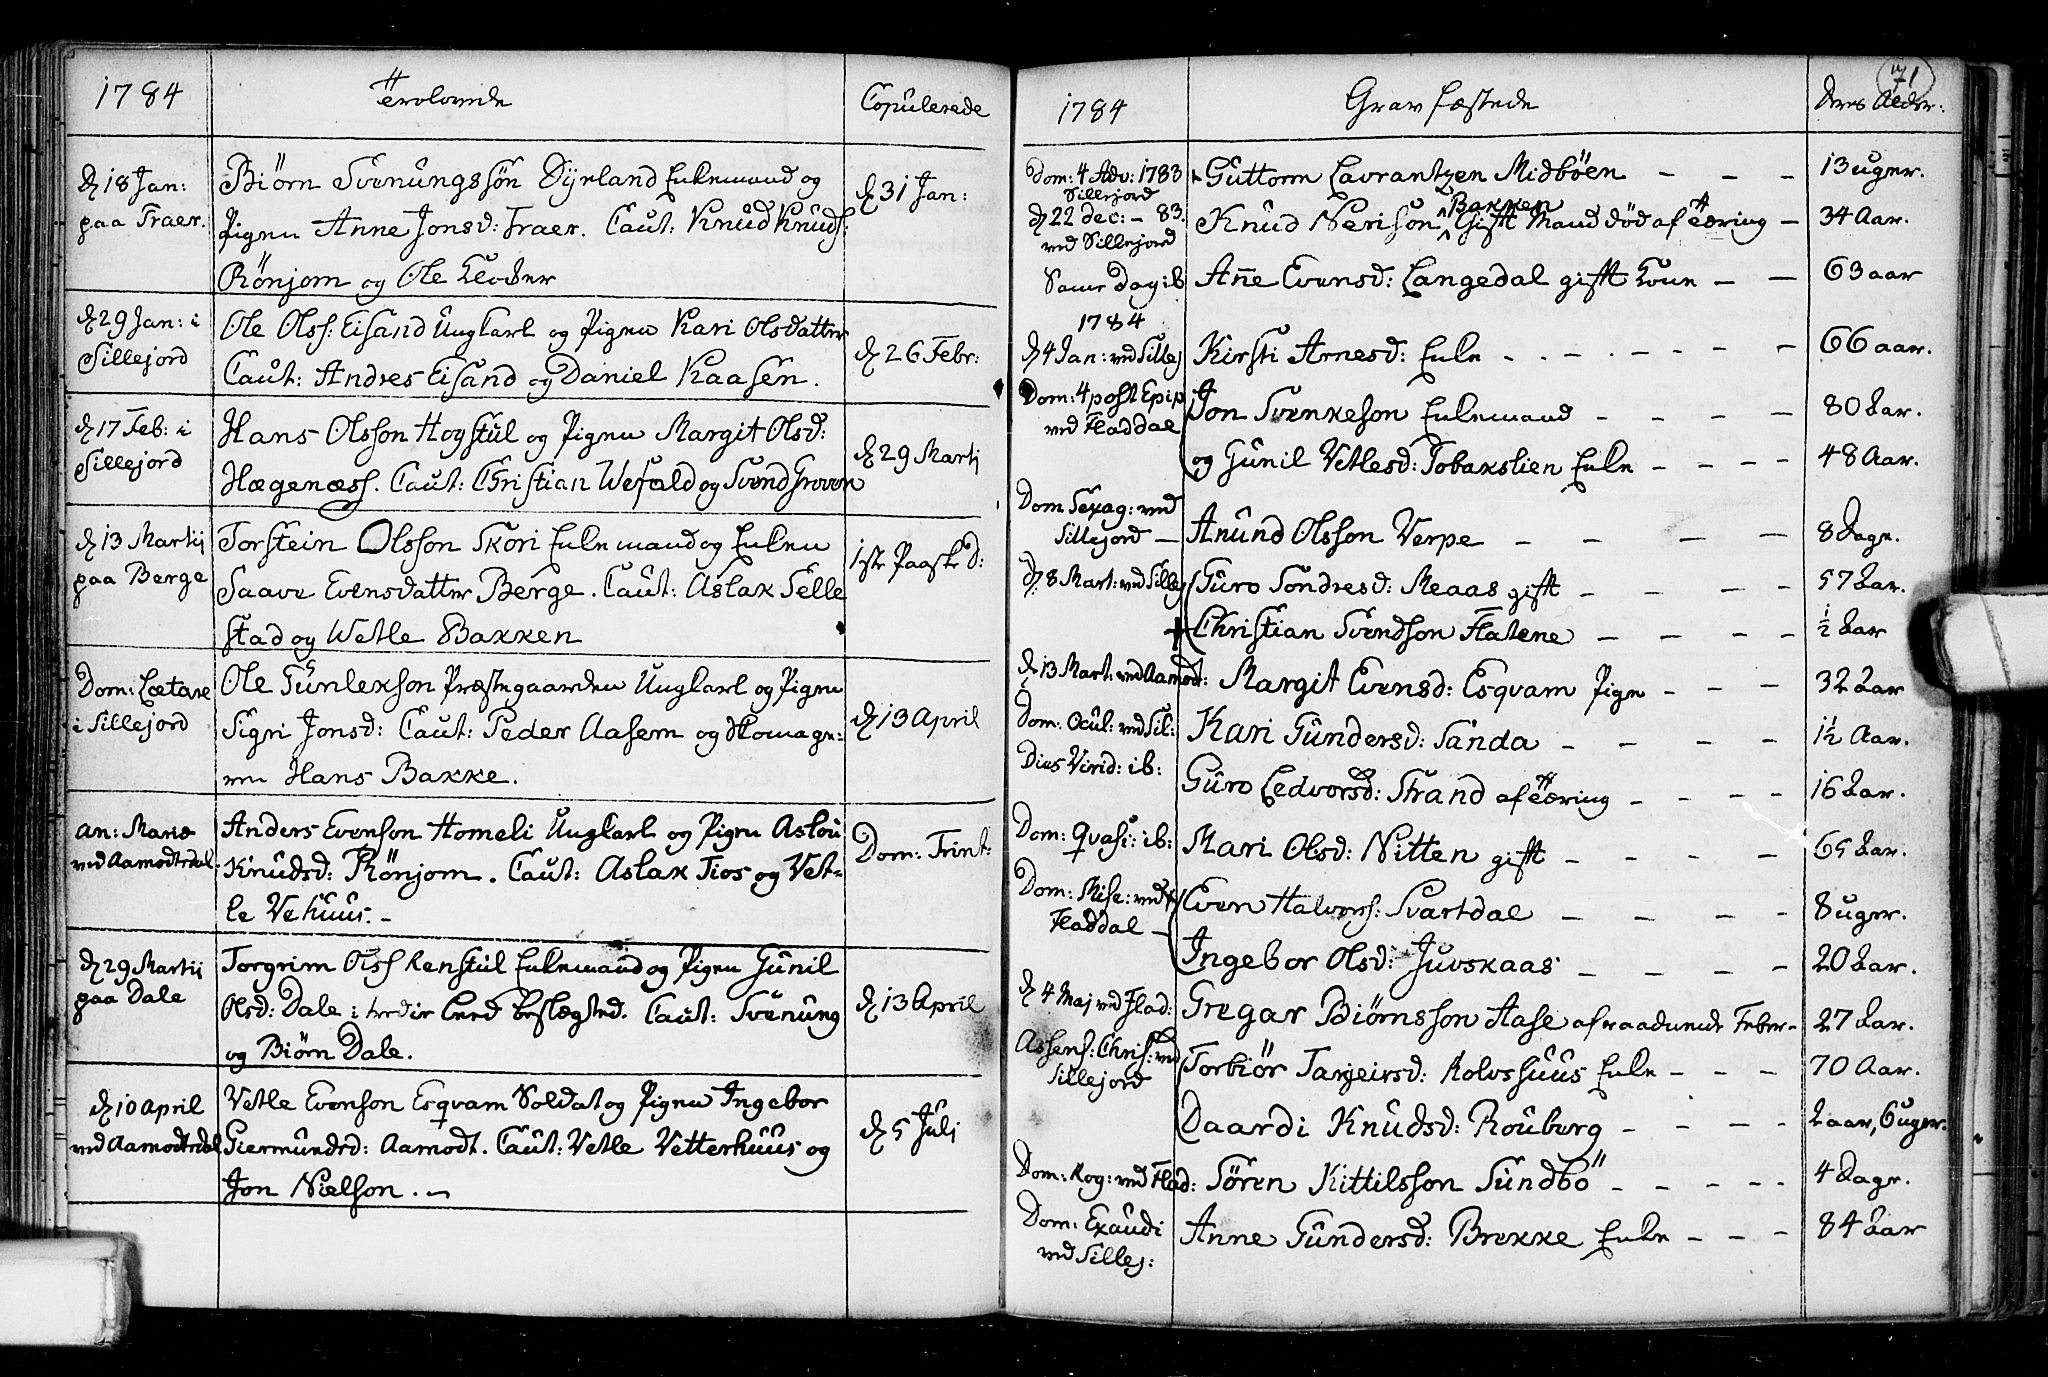 1784
Trolovede
Copulerede
d 18 Jan:
paa Traer.
Biörn Svenungssön Dyrland Enkemand og
Pigen Anne Jonsd: Traer. Caut: Knud Knuds:
Rönjom og Ole
d 31 Jan:
d 29 Jan: i
Sillejord
Ole Olss: Eisand Ungkarl og Pigen Kari Olsdatter
Caut: Andres Eisand og Daniel Kaasen.
d 26 Febr:
d 17 Feb: i
Sillejord
Hans Olsson Hoystul og Pigen Margit Olsd:
Hægenæss. Caut: Christian Wefald og Svend Groven
d 29 Martj
d 13 Martij
paa Berge
Torstein Olsson Skori Enkemand og Enken
Saave Evensdatter Berge. Caut: Aslak Selle
stad og Wetle Bakken
1ste Paaske D:
Dom: Lætare
i Sillejord
Ole Gunlekson Præstegaarden Ungkarl og Pigen
Signi Jonsd: Caut: Peder Aasem og Skomage-
ren Hans Bakke.
d 13 April
an: Mariæ
ved Aamodtsdal.
Anders Evenson Homeli Ungkarl og Pigen Aslou
Knudsd: Rönjom. Caut: Aslak Tios og Vet-
le Vehuus. –
Dom: Trint:
d 29 Martij
paa Dale
Torgrim Olss Renstul Enkemand og Pigen Gunil
Olsd: Dale i tredie Leed beslægted. Caut: Svenung
og Biörn Dale.
d 13 April
d 10 April
ved Aamodtsdal
Vetle Evenson Esqvam Soldat og Pigen Ingebor
Giermundsd: Aamodt. Caut: Vetle Vetterhuus og
Jon Nielson. –
d 5 Julj
71
1784
Grav fæstede
Deres Alder:
Dom: 4 Adv: 1783
Sillejord
Guttorm Lavrantzen Midböen – – –
13 uger.
d 22 dec: – 83.
ved Sillejord
Bakken
Knud Nerison Gift Mand död af Tæring –
34 Aar.
Same Dag ib
Anne Evensd: Langedal gift Kone – –
63 aar
1784
d 4 Jan: ved Sillej
Kirsti Arnesd: Enke – – – – – – –
66 aar.
Dom: 4 post Epip
ved Fladdal
Jon Svenkeson Enkemand – – – –
80 Aar.
og Gunil Vetlesd: Tobakslien Enke – – – –
48 Aar.
Dom Sexag: ved
Sillejord –
Anund Olsson Verpe – – – –
8 Dage.
d 8 Mart: ved Sillej
Guro Tondresd: Meaas gift – – – –
57 Aar.
Christian Svendson Flatene – – – –
½ Aar
d 13 Mart: ved Aamodt:
Margit Evensd: Esqvam Pige – – –
32 Aar
Dom: Ocul: ved Sil:
Kari Gundersd: Sanda – – – –
1½ Aar.
Dies Virid: ib:
Guro Ledvorsd: Strand af Tæring – – – –
16 Aar.
Dom: Qvasi: ib:
Mari Olsd: Nitten gift – – – –
65 Aar.
Dom: Mise: ved
Fladdal –
Even Halvors: Svartdal – – – –
8 uger.
Ingebor Olsd: Juvskaas – – – –
20 Aar.
d 4 Maj ved Flad:
Gregar Biörnsson Aase af raadnende Feber –
27 Aar.
Assens: Chris: ved
Sillejord
Torbiör Tarjeirsd: Kolvshuus Enke – – –
70 Aar.
Daardi Knudsd: Rouberg – – – –
2 aar, 6 uger.
Dom: Rog: ved Flad:
Sören Kittilsson Sundbö – – – – –
4 Dage.
Dom: Exaudi
ved Sillej:
Anne Gundersd: Brekke Enke – – –
84 Aar